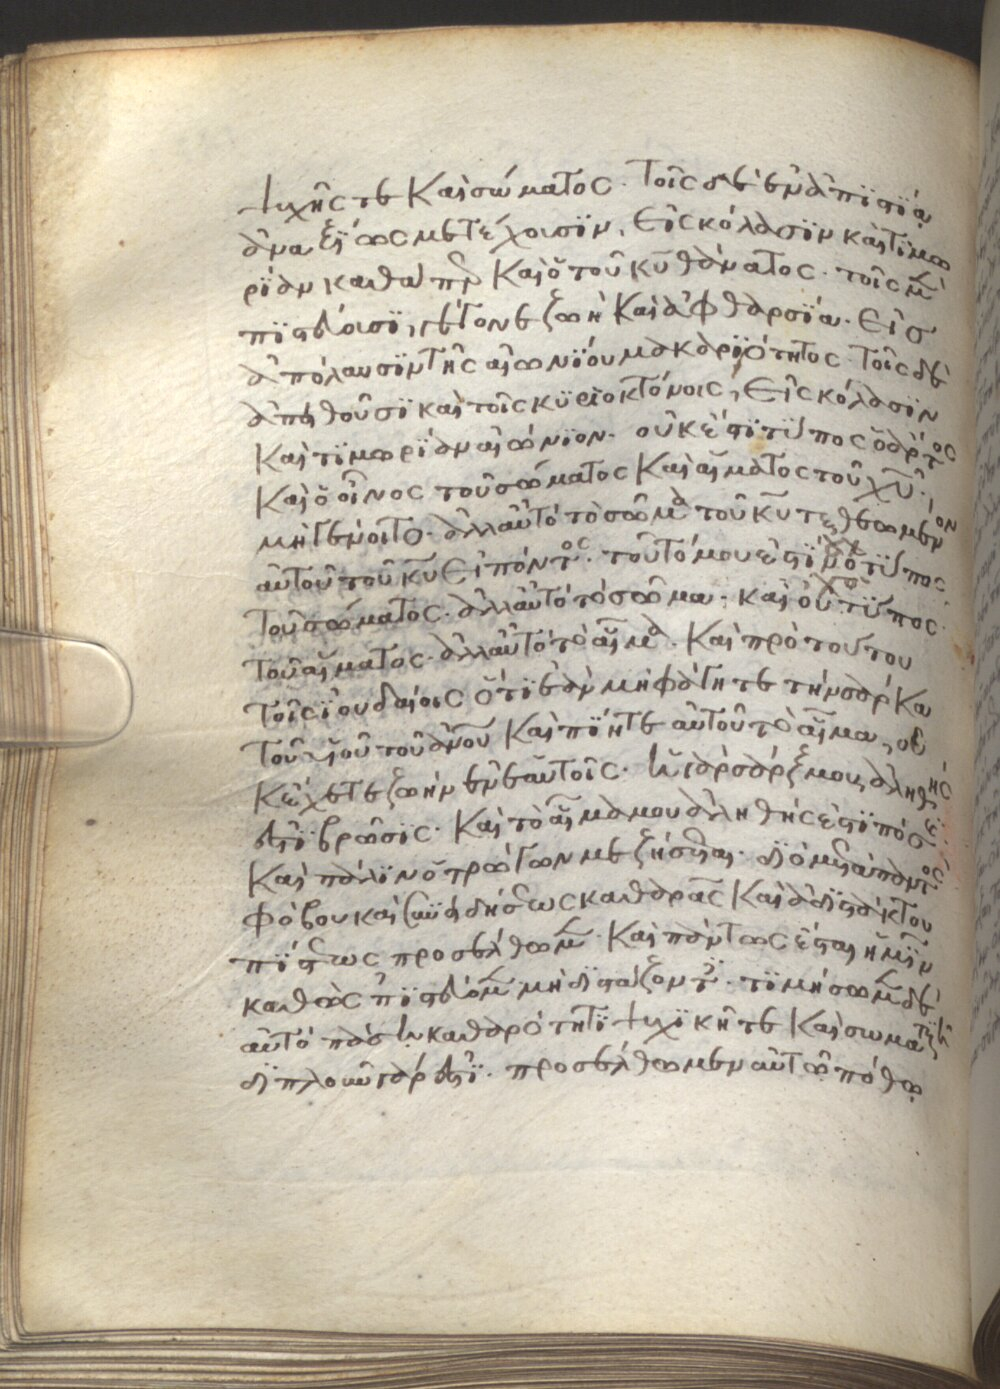 ψυχῆς τε καὶ σώματος. τοῖς δὲ ἐν ἀπϊστϊᾳ
ἀναξϊως μετέχουσϊν, εἰς κόλασϊν καὶ τϊμω
ρϊαν καθάπερ καὶ ὁ τοῦ κυ θάνατος. τοῖς μὲν
πϊστεύουσϊ, γέγονε ζωὴ καὶ ἀφθαρσϊα. εἰς
ἀπόλαυσϊν τῆς αἰωνϊου μακαρϊότητος. τοῖς δὲ
ἀπειθοῦσϊ καὶ τοῖς κυριοκτόνοις, εἰς κόλασϊν
καὶ τϊμωρϊαν αἰώνϊον. οὐκ ἔστϊ τύπος ὁ ἄρτος
καὶ ὁ οἶνος τοῦ σώματος καὶ αἵματος τοῦ χυ.
μὴ γένοιτο. ἀλλ' αὐτὸ τὸ σῶμα τοῦ κυ τεθεωμένον
αὐτοῦ τοῦ κυ εἰπόντος. τοῦτό μου ἐστϊ οὐ τύπος
τοῦ σώματος. ἀλλ' αὐτὸ τὸ σῶμα. καὶ οὐ τύπος
τοῦ αἵματος. ἀλλ' αὐτὸ τὸ αἷμα. καὶ πρὸ τούτου
τοῖς ϊουδαίοις ὅτϊ ἐὰν μὴ φάγητε τὴν σάρκα
τοῦ υἱοῦ τοῦ ανου καὶ πϊητε αὐτοῦ τὸ αἷμα, οὐ
κ ἔχετε ζωὴν ἐν ἑαυτοῖς. ἡ γὰρ σάρξ μου, ἀληθής
ἐστϊ βρῶσϊς. καὶ τὸ αἷμά μου ἀληθής ἐστϊ πόσϊς.
καὶ πάλϊν ὁ τρώγων με ζήσεται. διὸ μετὰ παντὸς
φόβου καὶ συνειδήσεως καθαρᾶς καὶ ἀδϊστάκτου
πϊστεως προσέλθωμεν. καὶ πάντως ἔσται ἡμῖν
καθὼς πϊστεύομεν μὴ διστάζοντες. τϊμήσωμεν δὲ
αὐτὸ πάσῃ καθαρότητϊ ψυχϊκῇ τε καὶ σωματϊκῇ
διπλοῦν γάρ ἐστϊ. προσέλθωμεν αὐτῷ πόθῳ